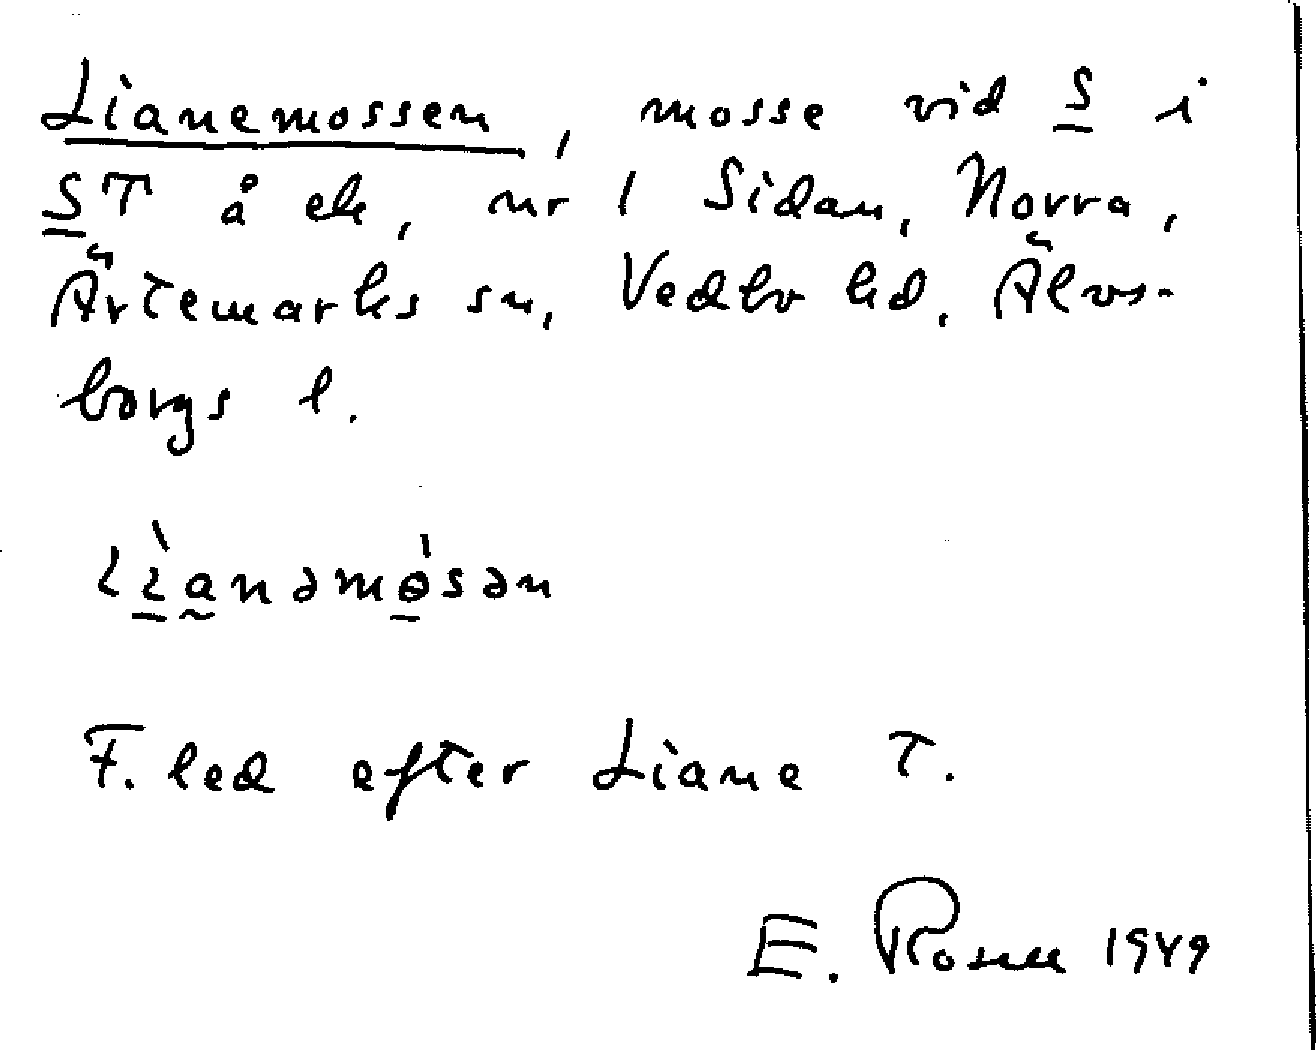 Lianemossen, mosse vid S i
ST å ek, nr 1 Sidan, Norra,
Ärtemarks sn, Vedbo hd. Älvs-
borgs l.
lìanəmósən
F. led efter Liane T.
E. Rosell 1949